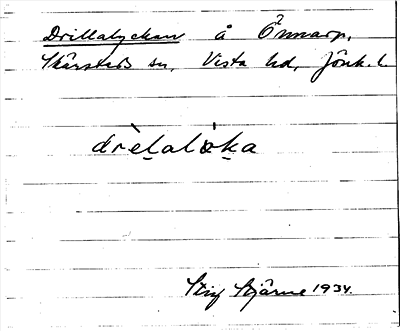 Drillalyckan å Önnarp,
Skärstads sn, Vista hd, Jönk. l.
drel̲alök̲a
Stig Bjärme 1934.